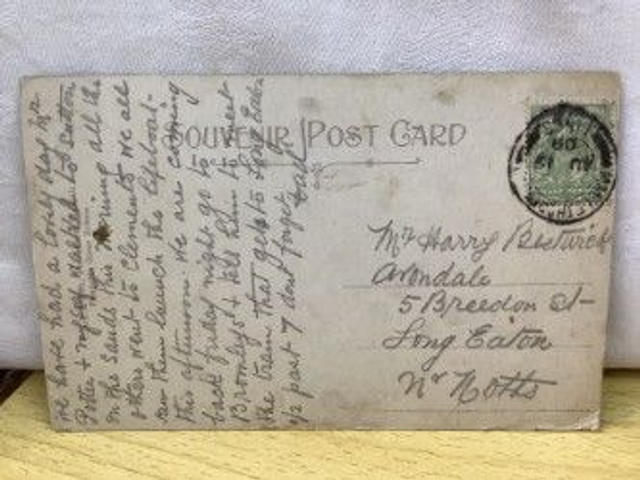 SOUVENIR POST CARD
Mr Harry Bestwick
Avondale
5 Breedon St
Long Eaton
Nr Notts
We have had a lovely day Mr
Potter & myself walked to Sutton
on the sands this morning all the
others went to Clements we all
saw them launch the lifeboat
this afternoon. We are coming
back friday night go to
Bromleys & tell him to meet
the train that gets to Long Eaton
1/2 past 7 dont forget
AU 19
09